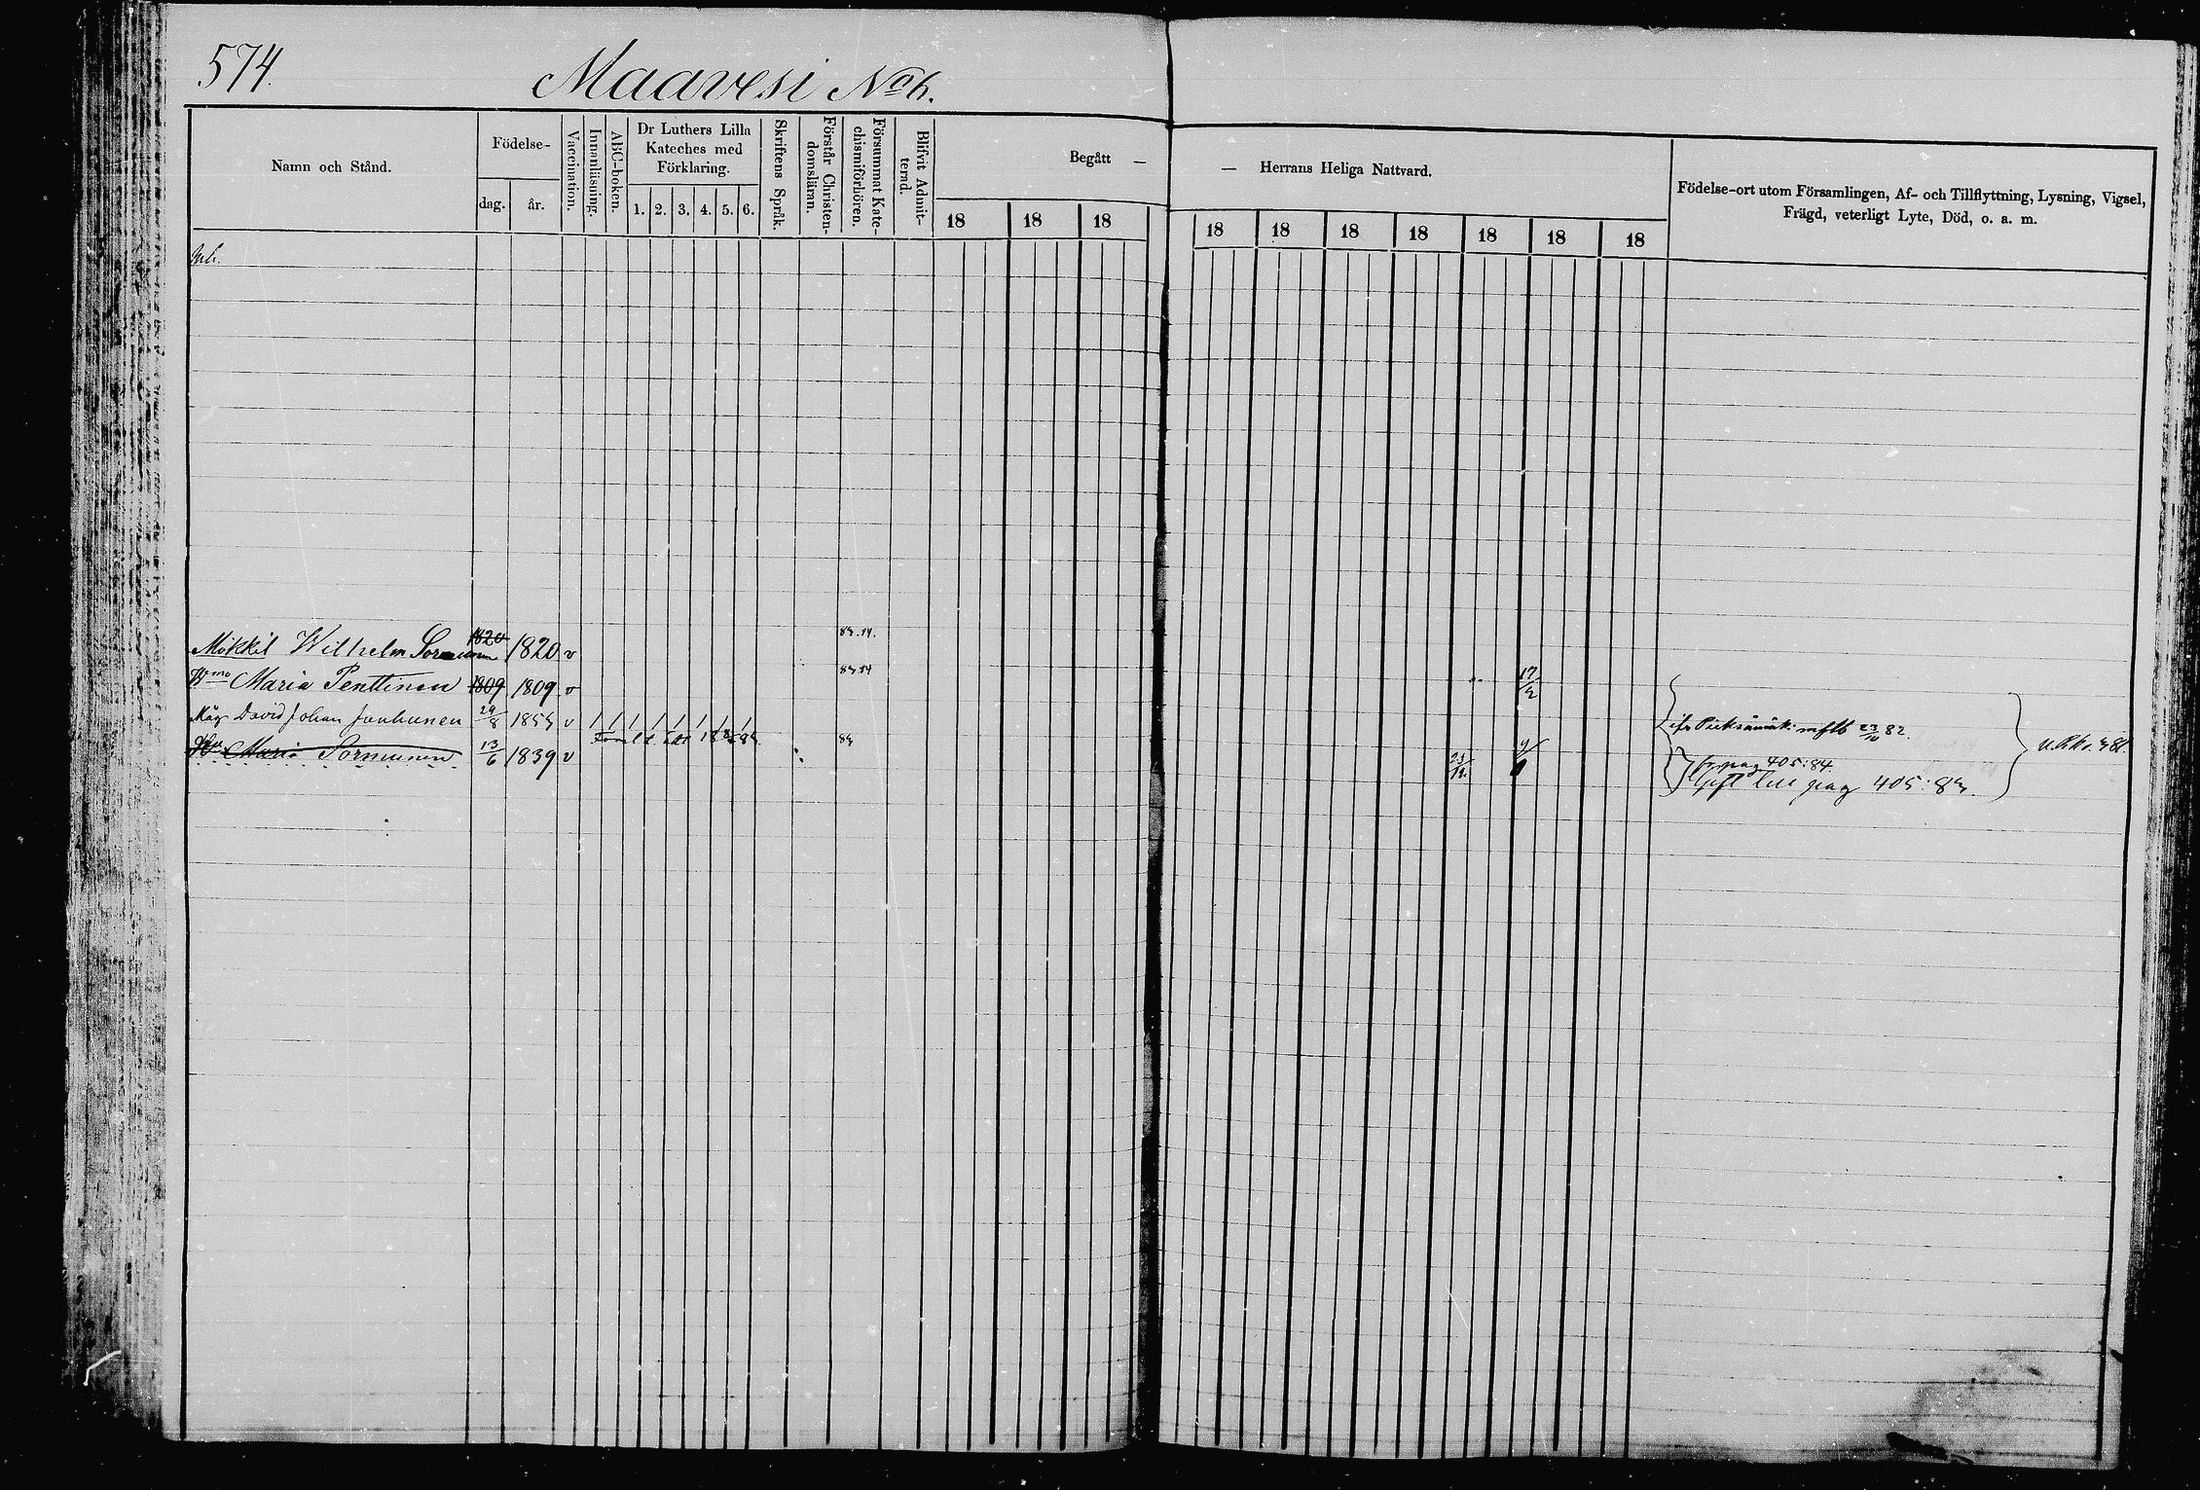 574.
Maavesi No 6.
Namn och Stånd.
Födelse-
dag. år.
Vaccination.
Innanläsning.
ABC-boken.
Dr Luthers Lilla Kateches med Förklaring.
1. 2. 3. 4. 5. 6.
Skriftens Språk.
Förstår Christen-domsläran.
Försummat Kate-chismiförhören.
Blifvit Admit-terad.
Begått — — Herrans Heliga Nattvard.
18 18 18 18 18 18 18 18 18 18
Födelse-ort utom Församlingen, Af- och Tillflyttning, Lysning, Vigsel, Frägd, veterligt Lyte, Död, o. a. m.
Inh.
Mikkel Wilhelm Sormunen 1820 1820 v 83.84.
Maria Penttinen 1809 1809 v 83.84 17/2
Måg David Johan Janhunen 24/8 1853 v 83 9/
Maria Sormunen 13/6 1839 v 23/12
Pieksämäki 23/10 82.
fr pag 405:84.
till pag 405:83.